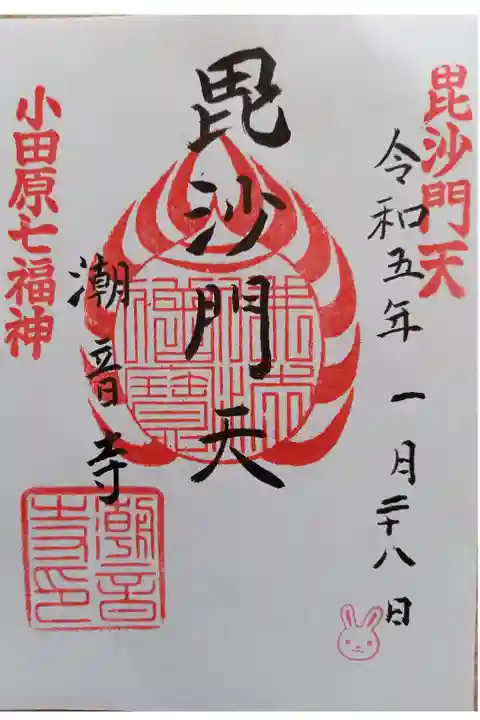 毘沙門天
令和五年 一月二十八日
毘沙門天
潮音寺
小田原七福神
潮音
寺印